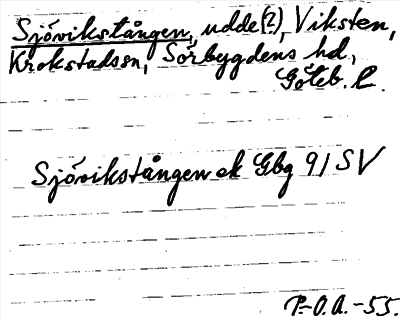 Sjövikstången, udde(?), Viksten,
Krokstadssn, Sörbygdens hd,
Göteb. l.
Sjövikstången ek Gbg 91 SV
P.-O.A.-55.